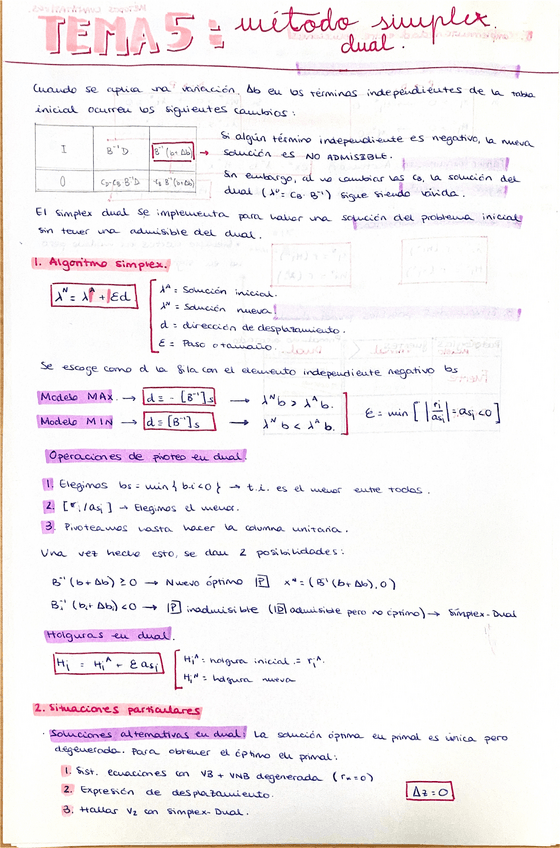 TEMA 5: método simplex dual.
Cuando se aplica una variación Δb en los términos independientes de la tabla
inicial ocurren los siguientes cambios:
I B⁻¹D B⁻¹(b+Δb) →
0 B⁻¹D B⁻¹(b+Δb)
Si algún término independiente es negativo, la nueva
solución es NO ADMISIBLE.
Sin embargo, al no cambiar las cB, la solución del
dual (λ* = cB·B⁻¹) sigue siendo válida.
El simplex dual se implementa para hallar una solución del problema inicial
sin tener una admisible del dual.
1. Algoritmo simplex.
λᴺ = λᴬ + εd
λᴬ = Solución inicial.
λᴺ = Solución nueva
d = dirección de desplazamiento.
ε = Paso o tamaño.
Se escoge como d la fila con el elemento independiente negativo bs
Modelo MAX. → d = -[B⁻¹]s → λᴺb > λᴬb.
Modelo MIN → d = [B⁻¹]s → λᴺb < λᴬb.
ε = min [ |rj/asj| = asj < 0 ]
Operaciones de pivoteo en dual.
1. Elegimos bs = min { bi < 0 } → t.i. es el menor entre todos.
2. [rj/asj] → Elegimos el menor.
3. Pivoteamos hasta hacer la columna unitaria.
Una vez hecho esto, se dan 2 posibilidades:
B⁻¹(b+Δb) ≥ 0 → Nuevo óptimo P x* = (B⁻¹(b+Δb), 0)
Bi⁻¹(bi+Δbi) < 0 → P inadmisible (D admisible pero no óptimo) → Simplex-Dual
Holguras en dual.
Hj = Hjᴬ + ε asj
Hjᴬ = holgura inicial = rjᴬ.
Hjᴺ = holgura nueva
2. Situaciones particulares
· Soluciones alternativas en dual: La solución óptima en primal es única pero
degenerada. Para obtener el óptimo en primal:
1. Sist. ecuaciones con VB + VNB degenerada (rn=0)
2. Expresión de desplazamiento.
Δz = 0
3. Hallar V2 con Simplex-Dual.